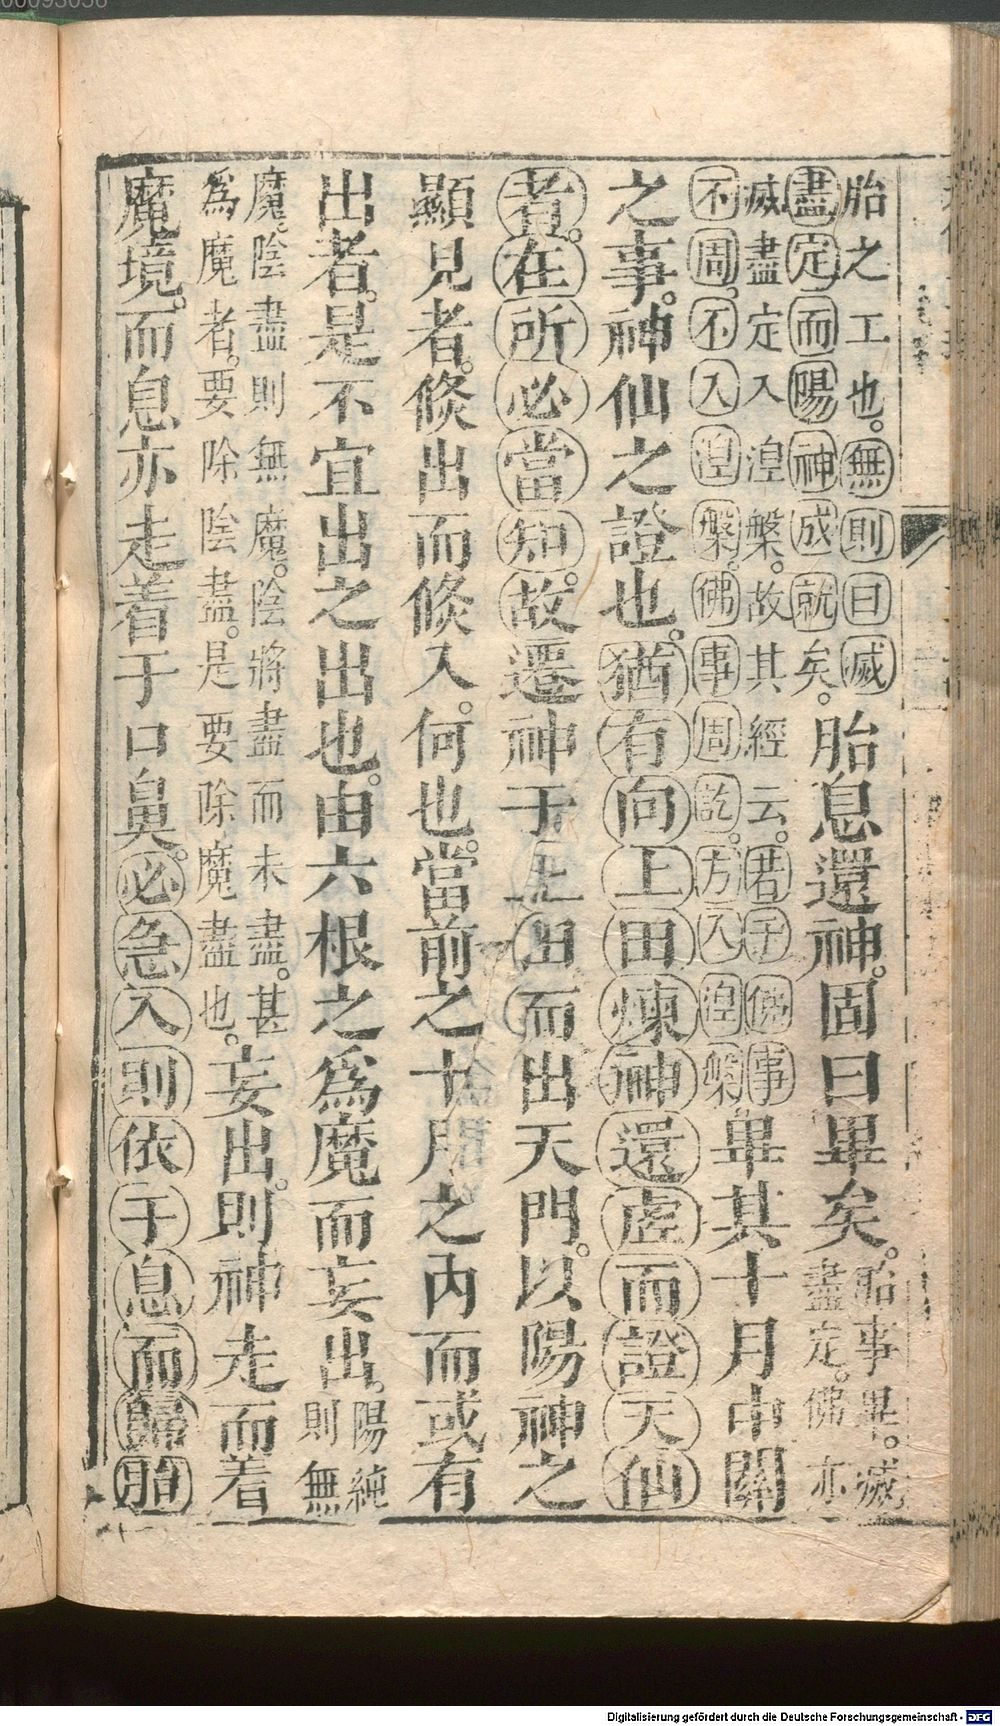 胎之工也。無則曰滅
盡定而陽神成就矣。
胎息還神。固曰畢矣。
胎事畢。滅
盡定。佛亦
滅盡定入湼槃。故其經云。若子佛事
不周。不入湼槃。佛事周訖。方入湼槃
畢其十月中關
之事。神仙之證也。猶有向上田煉神還虛而證天仙
者。在所必當知。故遷神于上田而出天門。以陽神之
顯見者。倐出而倐入。何也。當前之十月之內而或有
出者。是不宜出之出也。由六根之爲魔而妄出。
陽純
則無
魔。陰盡則無魔。陰將盡而未盡。甚
爲魔者。要除陰盡。是要除魔盡也。
妄出。則神走而着
魔境。而息亦走着于口鼻。必急入則依于息而歸胎
00093056
Digitalisierung gefördert durch die Deutsche Forschungsgemeinschaft - DFG